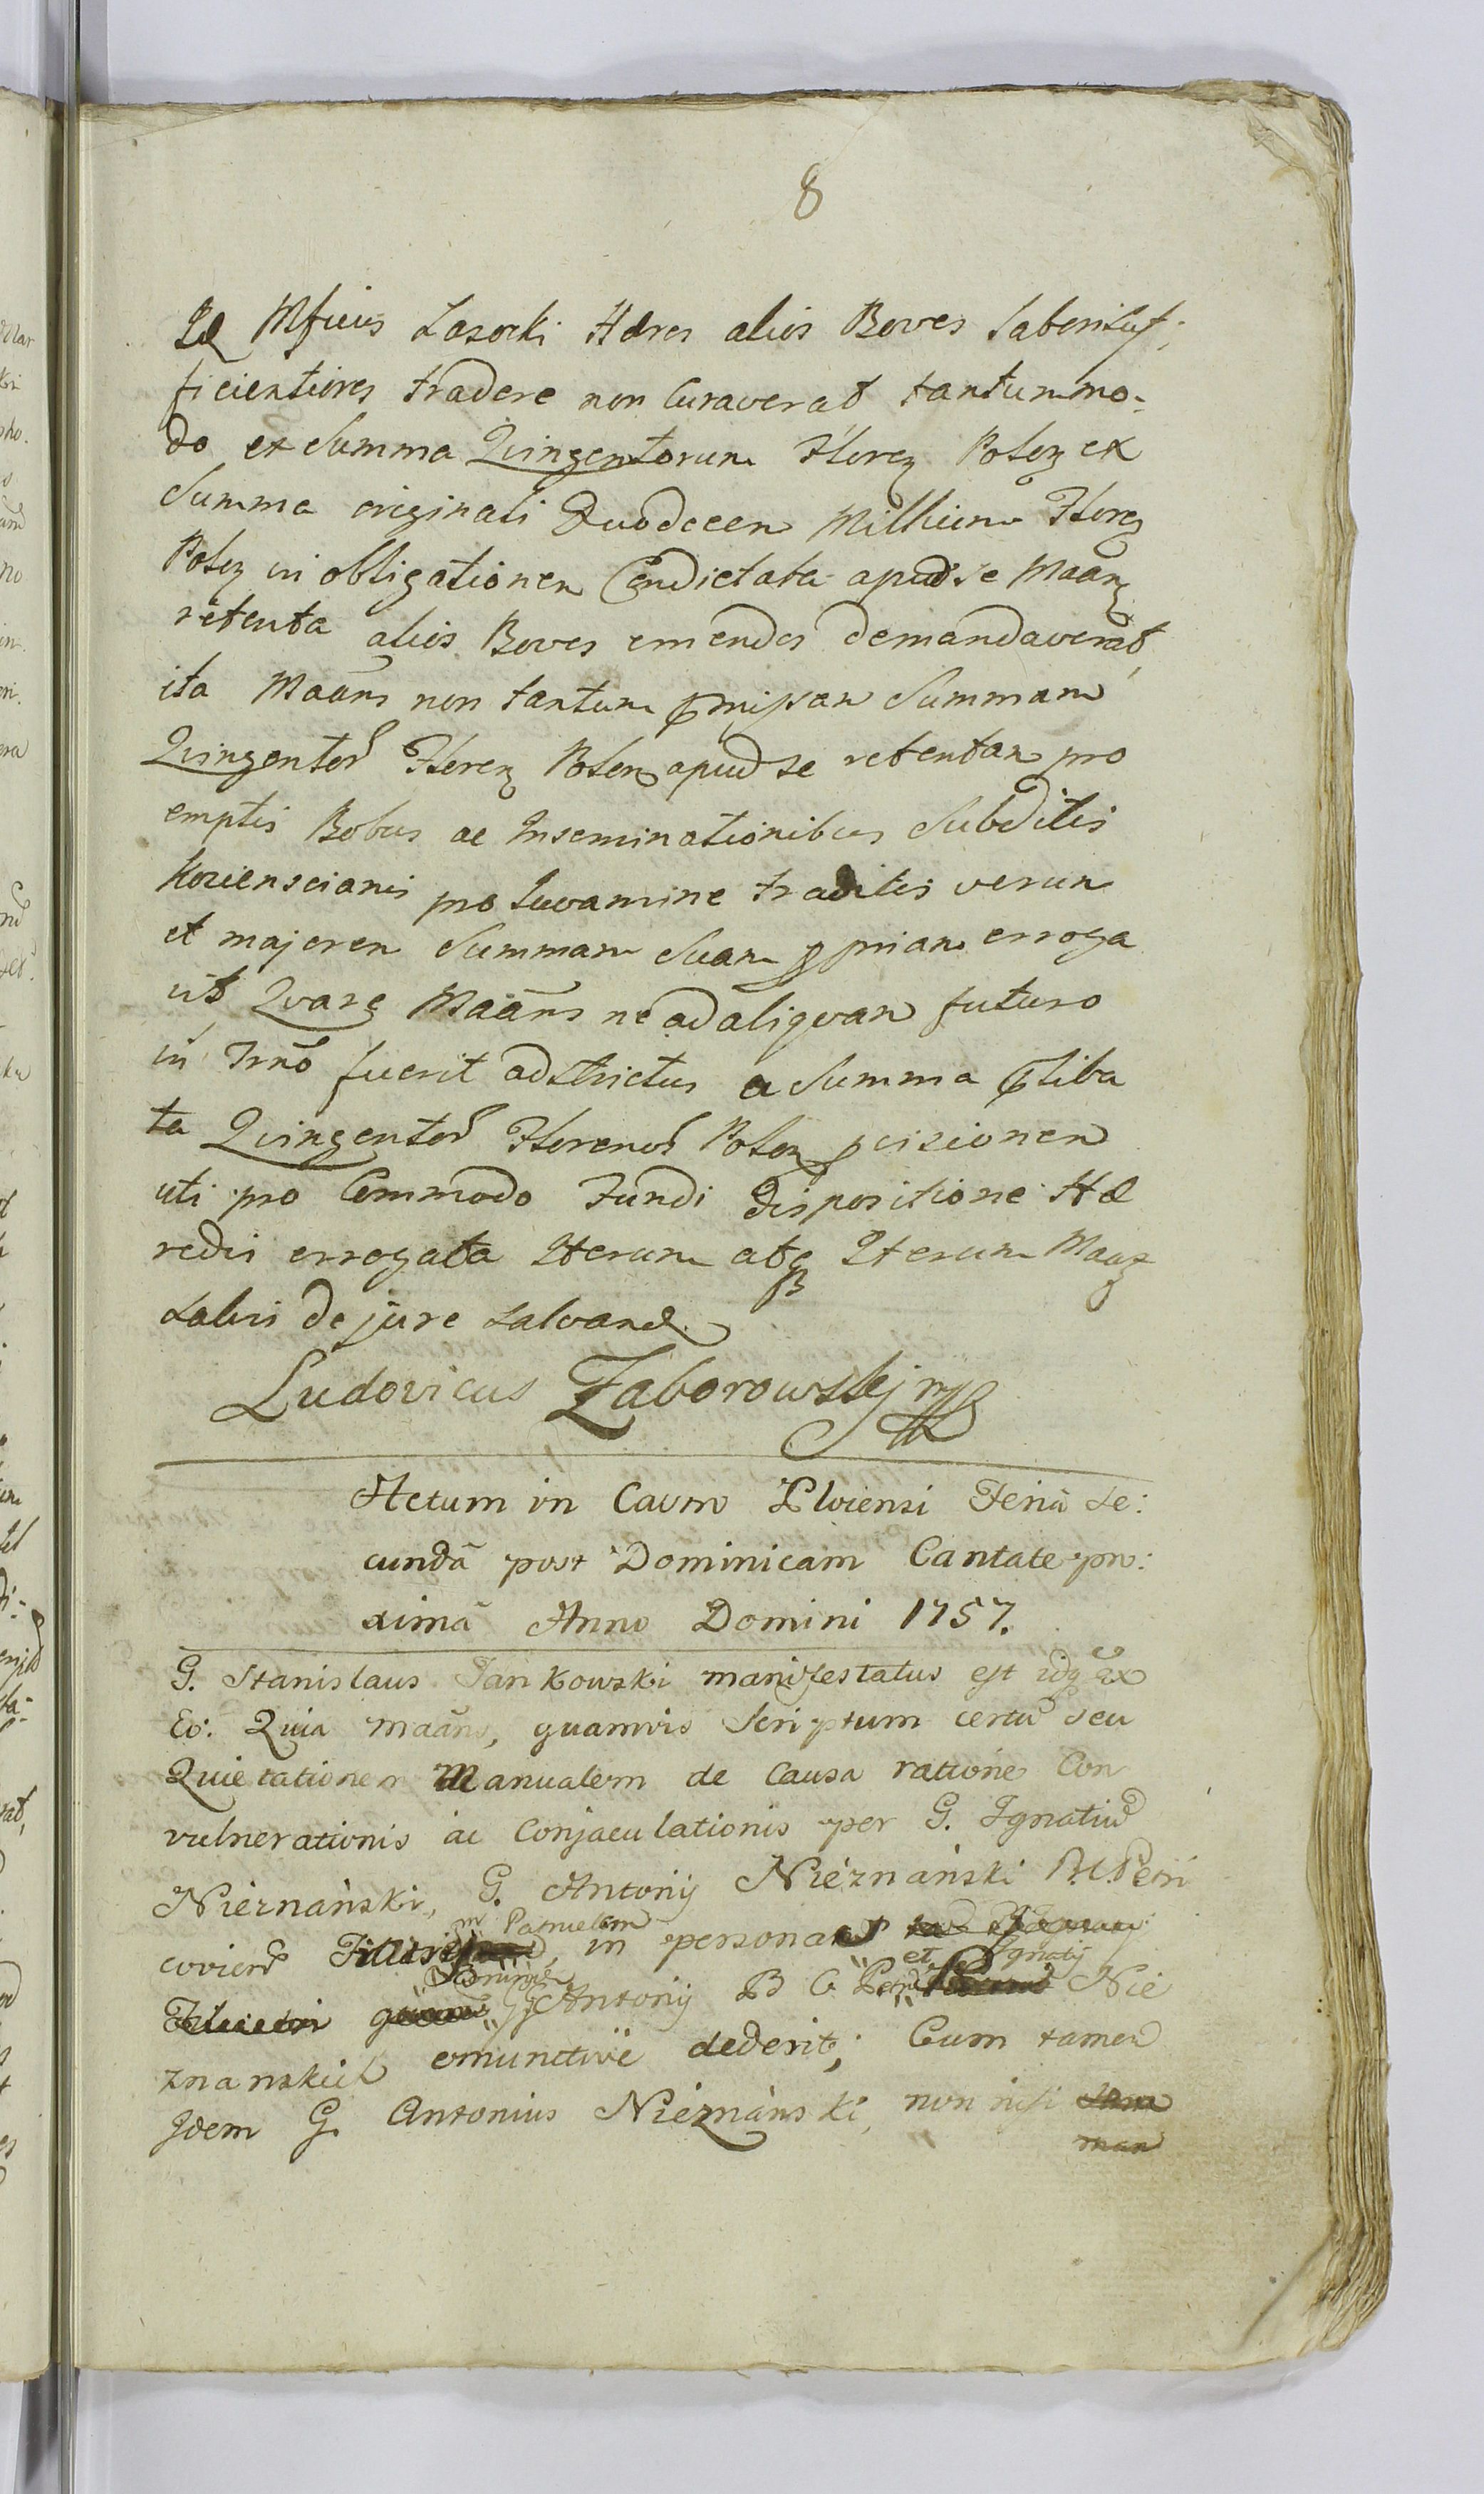 8
Mficus Lasocki Hæres alios Boves labori suf:
ficientiores tradere non curaverat tantummo-
do ex Summa Qvingentorum Floreŋ Poloŋ ex
Summa originali Duodecem Millium Floreŋ
Poloŋ in obligationem Condictata apud se Maanŋ
retenta alios Boves emendos demandaverat,
ita Maans non tantum pmissam Summam
Qvingentor Floreŋ Polon apud se retentam pro
emptis Bobus ac Inseminationibus Subditis
Kozienscianis pro Iuvamine traditis verum
et majorem Summam Suam ppriam erroga
vit Qvare Maans ne ad aliqvam futuro
in Trno fuerit adstrictus a Summa pliba
ta Qvingentor Florenor Polon pcisionem
uti pro Commodo Fundi dispositione Hæ
redis errogata Iterum atq Iterum Maaŋ
salvis de jure salvand.
Ludovicus Zaborowskj mp
Actum in Castro Plocensi Feriâ Se:
cundâ post Dominicam Cantate pro:
ximâ Anno Domini 1757.
G. Stanislaus Jankowski manifestatus est idq ex
Eo: Quia maans, quamvis Scriptum certũ seu
Quietationem Manualem de Causa ratione Con
vulnerationis ac Conjaculationis per G. Ignatiũ
Nieznański, G. Antonij Nieznański B. C. Petri
Patruelem
covien in persona
et Ignatij
Antonij B C Nie
znanskich emunctivè dederit; Cum tamen
Idem G. Antonius Nieznański, non nisi